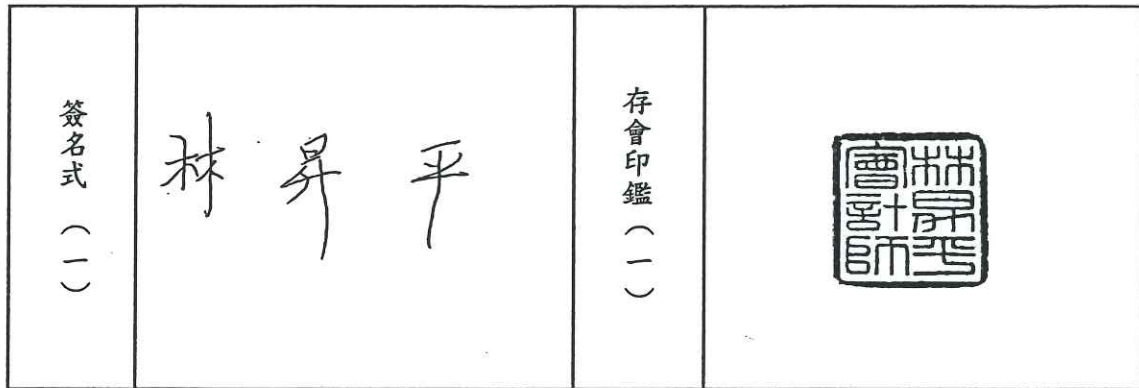 簽名式（一）
林昇平
存會印鑑（一）
林昇平
會計師